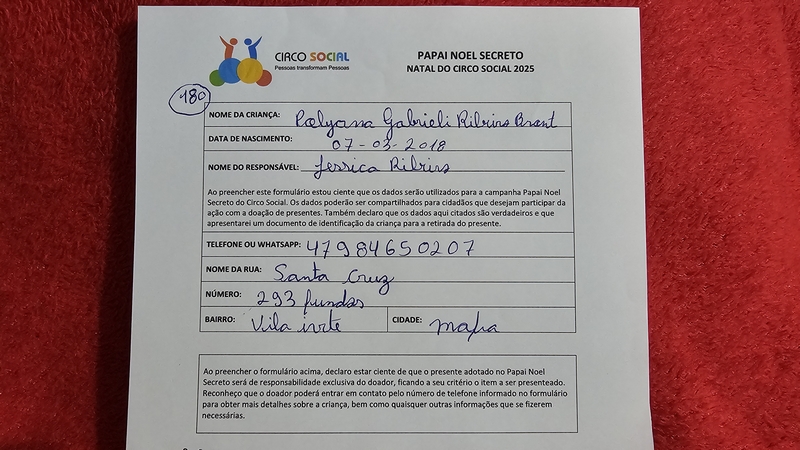 CIRCO SOCIAL
Pessoas transformam Pessoas
PAPAI NOEL SECRETO
NATAL DO CIRCO SOCIAL 2025
180
NOME DA CRIANÇA: Gabrieli Ribeiro Brant
DATA DE NASCIMENTO: 07-03-2018
NOME DO RESPONSÁVEL: Jessica Ribeiro
Ao preencher este formulário estou ciente que os dados serão utilizados para a campanha Papai Noel
Secreto do Circo Social. Os dados poderão ser compartilhados para cidadãos que desejam participar da
ação com a doação de presentes. Também declaro que os dados aqui citados são verdadeiros e que
apresentarei um documento de identificação da criança para a retirada do presente.
TELEFONE OU WHATSAPP: 47984650207
NOME DA RUA: Santa Cruz
NÚMERO: 293 fundos
BAIRRO: Vila CIDADE: mafra
Ao preencher o formulário acima, declaro estar ciente de que o presente adotado no Papai Noel
Secreto será de responsabilidade exclusiva do doador, ficando a seu critério o item a ser presenteado.
Reconheço que o doador poderá entrar em contato pelo número de telefone informado no formulário
para obter mais detalhes sobre a criança, bem como quaisquer outras informações que se fizerem
necessárias.